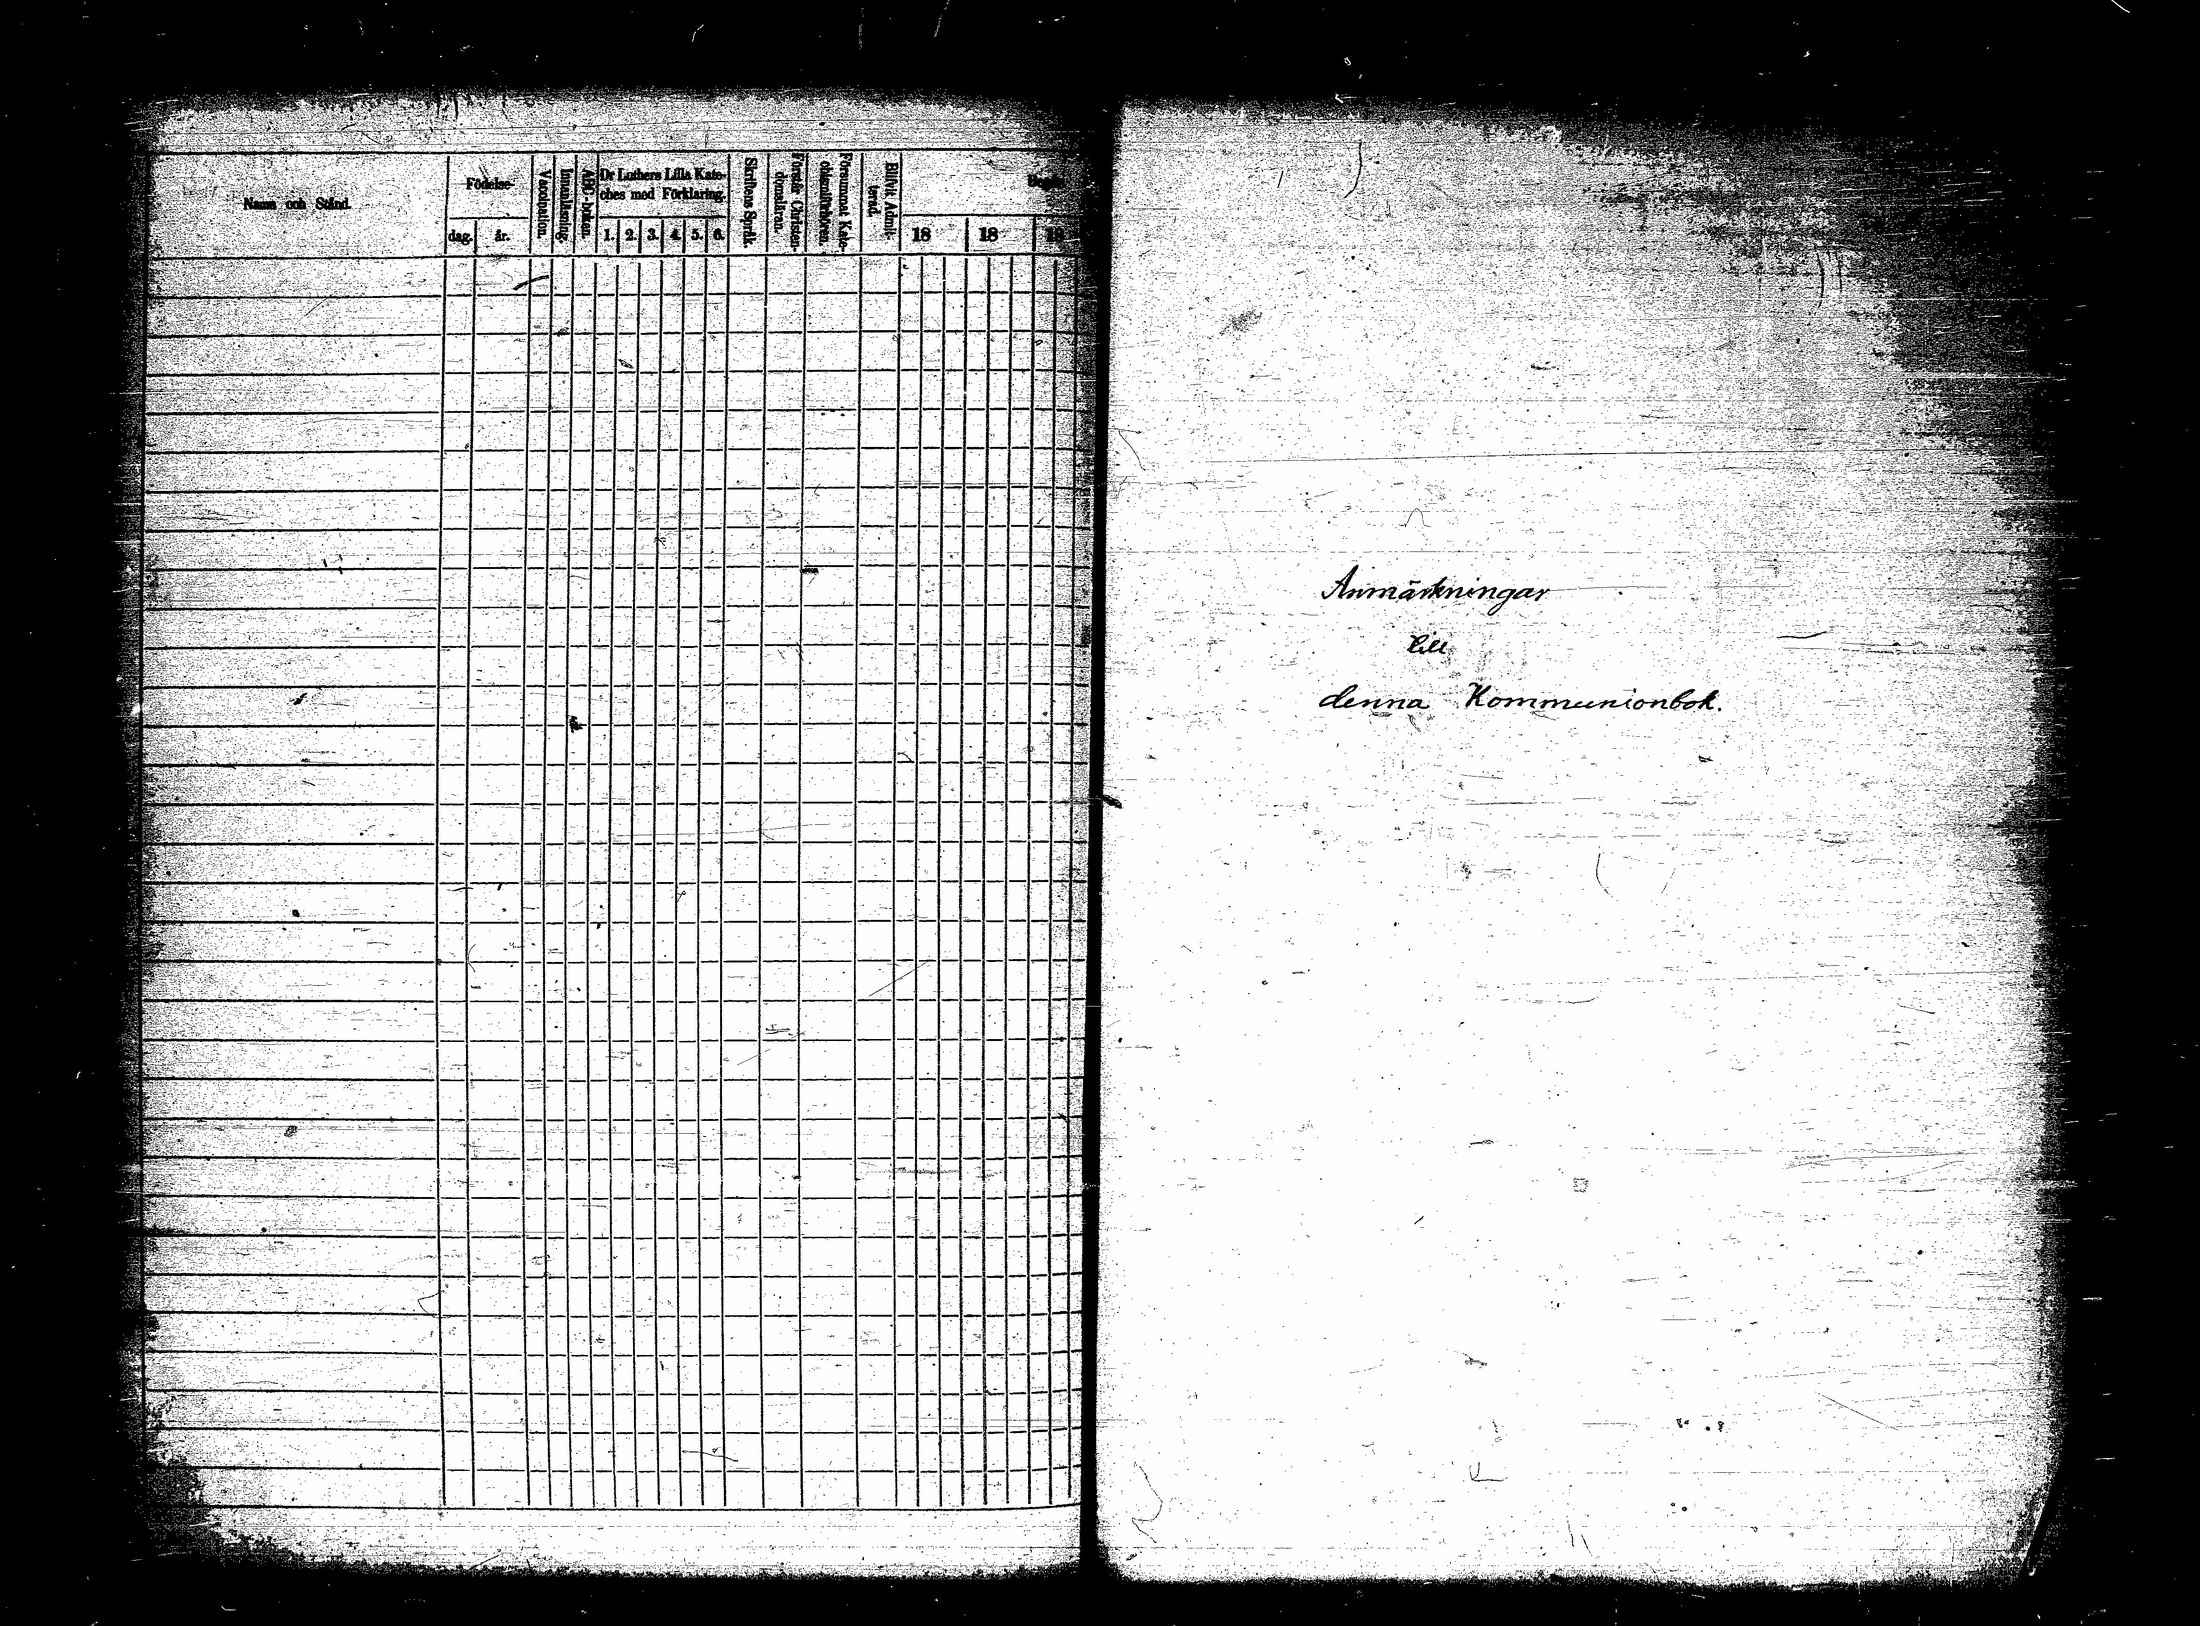 Namn och Stånd.
Födelse-
dag.
år.
Vaccination.
Innanläsning.
ABC-boken.
Dr Luthers Lilla Kate-
ches med Förklaring.
1. 2. 3. 4. 5. 6.
Skriftens Språk.
Förstår Christen-
domsläran.
Försummat Kate-
chismiförhören.
Blifvit Admit-
terad.
18 18 18
Anmärkningar
till
denna Kommunionbok.